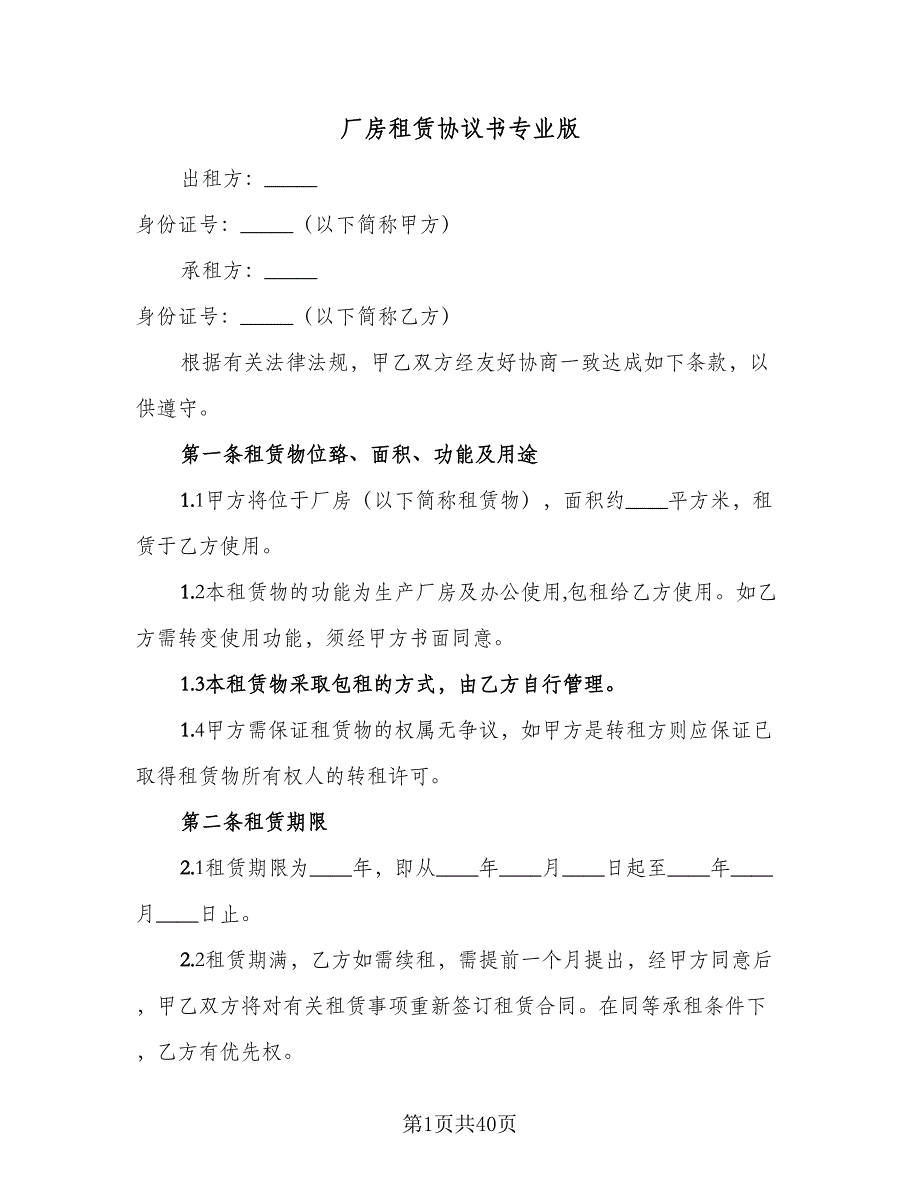 厂房租赁协议书专业版
出租方：_____
身份证号：_____（以下简称甲方）
承租方：_____
身份证号：_____（以下简称乙方）
根据有关法律法规，甲乙双方经友好协商一致达成如下条款，以
供遵守。
第一条租赁物位臵、面积、功能及用途
1.1甲方将位于厂房（以下简称租赁物），面积约____平方米，租
赁于乙方使用。
1.2本租赁物的功能为生产厂房及办公使用,包租给乙方使用。如乙
方需转变使用功能，须经甲方书面同意。
1.3本租赁物采取包租的方式，由乙方自行管理。
1.4甲方需保证租赁物的权属无争议，如甲方是转租方则应保证已
取得租赁物所有权人的转租许可。
第二条租赁期限
2.1租赁期限为____年，即从____年____月____日起至____年____
月____日止。
2.2租赁期满，乙方如需续租，需提前一个月提出，经甲方同意后
，甲乙双方将对有关租赁事项重新签订租赁合同。在同等承租条件下
，乙方有优先权。
第1页共40页